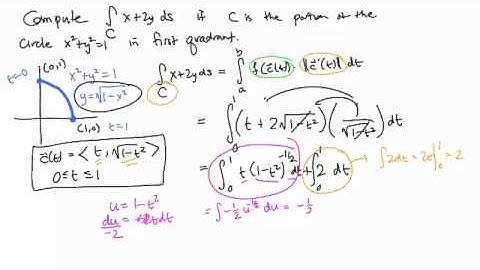 Compute ∫_C x+2y ds if C is the portion of the
circle x²+y²=1 in first quadrant.
t=0 (0,1) x²+y²=1
y=√(1-x²)
(1,0) t=1
∫_C x+2y ds = ∫_a^b f(r⃗(t)) ‖r⃗'(t)‖ dt
= ∫_0^1 (t + 2√(1-t²)) (1/√(1-t²)) dt
r⃗(t) = < t, √(1-t²) >
0≤t≤1
= ∫_0^1 t(1-t²)^(-1/2) dt + ∫_0^1 2 dt → ∫2dt = 2t|_0^1 = 2
u = 1-t²
du/-2 = tdt
= ∫ -1/2 u^(-1/2) du = -1/2